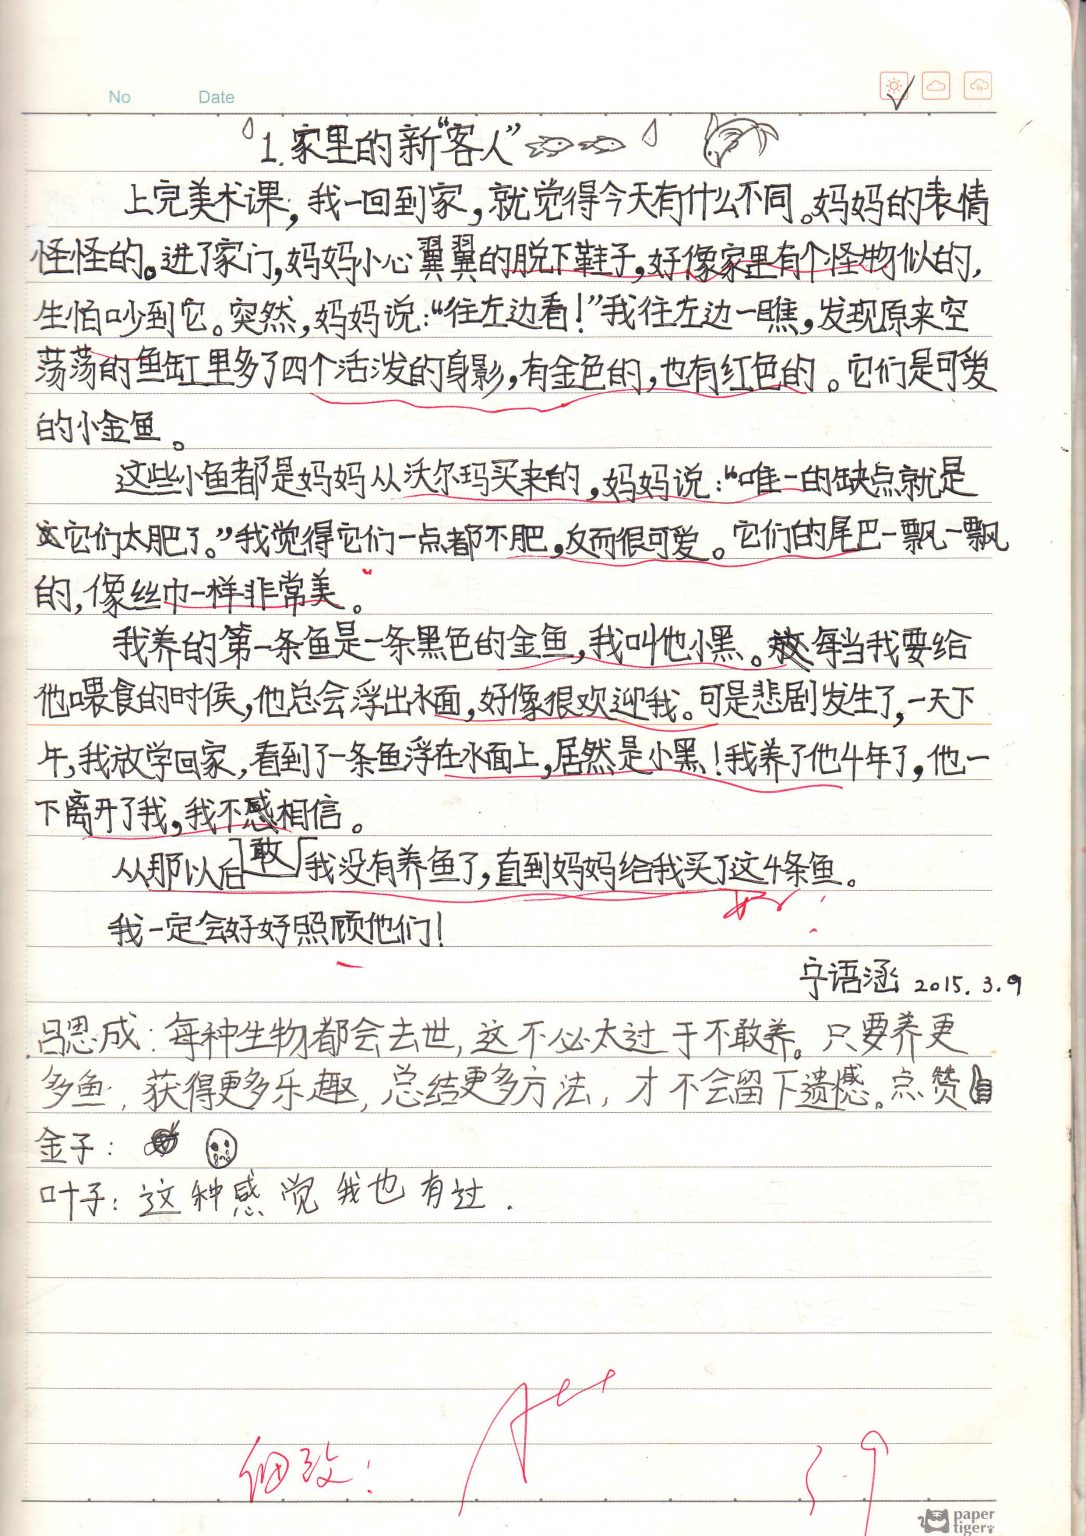 No Date
1. 家里的新“客人”
上完美术课，我一回到家，就觉得今天有什么不同。妈妈的表情
怪怪的。进了家门，妈妈小心翼翼的脱下鞋子，好像家里有个怪物似的，
生怕吵到它。突然，妈妈说：“往左边看！”我往左边一瞧，发现原来空
荡荡的鱼缸里多了四个活泼的身影，有金色的，也有红色的。它们是可爱
的小金鱼。
这些小鱼都是妈妈从沃尔玛买来的，妈妈说：“唯一的缺点就是
它们太肥了。”我觉得它们一点都不肥，反而很可爱。它们的尾巴一飘一飘
的，像丝巾一样非常美。
我养的第一条鱼是一条黑色的金鱼，我叫他小黑。每当我要给
他喂食的时候，他总会浮出水面，好像很欢迎我。可是悲剧发生了，一天下
午，我放学回家，看到了一条鱼浮在水面上，居然是小黑！我养了他4年了，他一
下离开了我，我不感相信。
敢
从那以后我没有养鱼了，直到妈妈给我买了这4条鱼。
好
我一定会好好照顾他们！
宁语涵 2015.3.9
吕思成：每种生物都会去世，这不必太过于不敢养。只要养更
多鱼，获得更多乐趣，总结更多方法，才不会留下遗憾。点赞
金子：
叶子：这种感觉我也有过.
细致！ A++ 3 9
paper
tiger